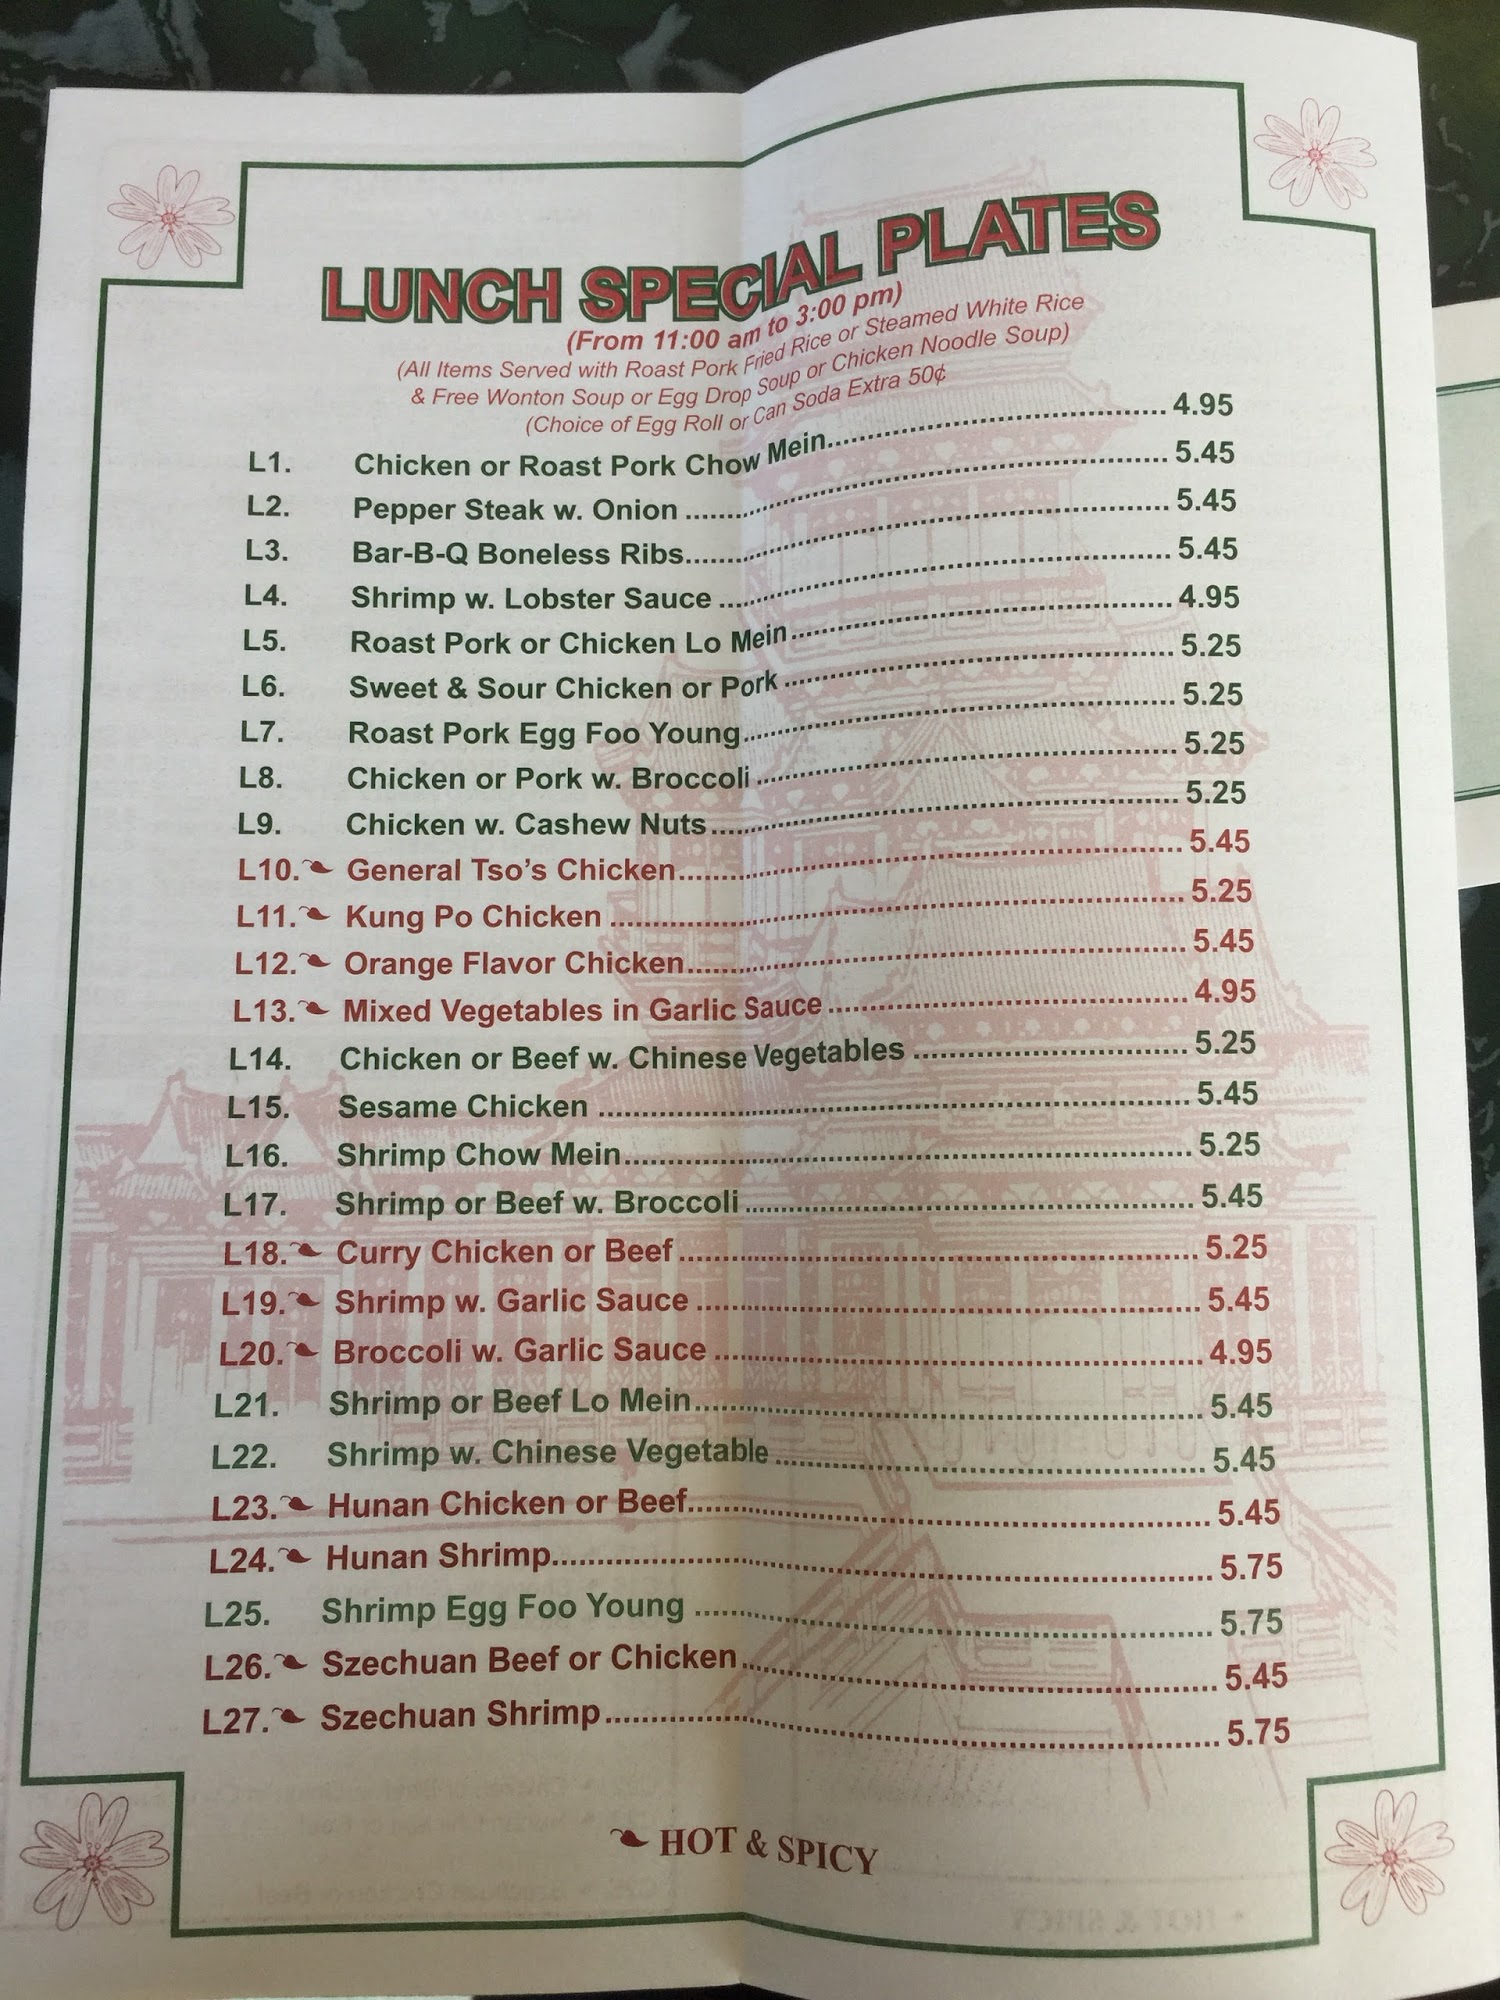 LUNCH SPECIAL PLATES
(From 11:00 am to 3:00 pm)
(All Items Served with Roast Pork Fried Rice or Steamed White Rice
& Free Wonton Soup or Egg Drop Soup or Chicken Noodle Soup)
(Choice of Egg Roll or Can Soda Extra 50¢
L1. Chicken or Roast Pork Chow Mein 4.95
L2. Pepper Steak w. Onion 5.45
L3. Bar-B-Q Boneless Ribs 5.45
L4. Shrimp w. Lobster Sauce 5.45
L5. Roast Pork or Chicken Lo Mein 4.95
L6. Sweet & Sour Chicken or Pork 5.25
L7. Roast Pork Egg Foo Young 5.25
L8. Chicken or Pork w. Broccoli 5.25
L9. Chicken w. Cashew Nuts 5.25
L10. General Tso's Chicken 5.45
L11. Kung Po Chicken 5.25
L12. Orange Flavor Chicken 5.45
L13. Mixed Vegetables in Garlic Sauce 4.95
L14. Chicken or Beef w. Chinese Vegetables 5.25
L15. Sesame Chicken 5.45
L16. Shrimp Chow Mein 5.25
L17. Shrimp or Beef w. Broccoli 5.45
L18. Curry Chicken or Beef 5.25
L19. Shrimp w. Garlic Sauce 5.45
L20. Broccoli w. Garlic Sauce 4.95
L21. Shrimp or Beef Lo Mein 5.45
L22. Shrimp w. Chinese Vegetable 5.45
L23. Hunan Chicken or Beef 5.45
L24. Hunan Shrimp 5.75
L25. Shrimp Egg Foo Young 5.75
L26. Szechuan Beef or Chicken 5.45
L27. Szechuan Shrimp 5.75
HOT & SPICY